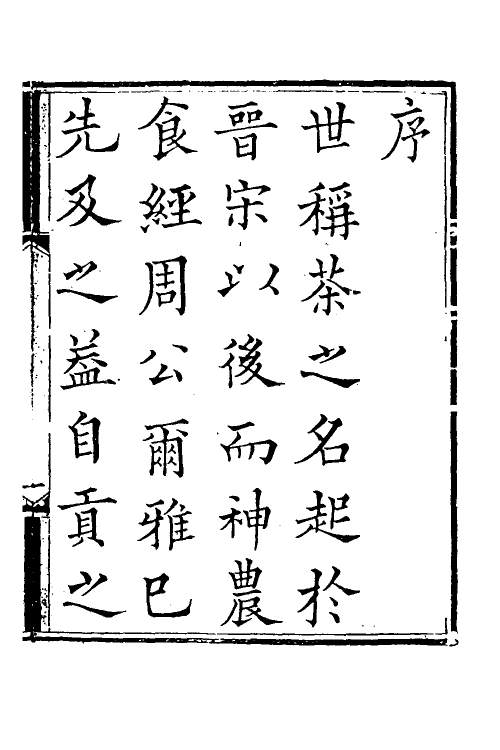 序
世稱茶之名起於
晉宋以後而神農
食經周公爾雅已
先及之益自貢之
一